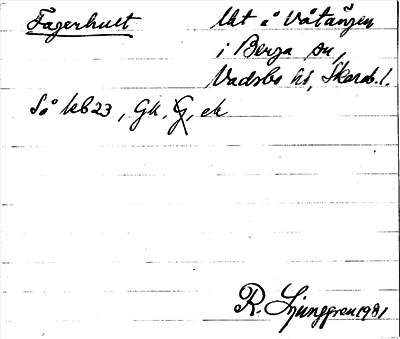 Fagerhult
Ukt å Våtängen
i Berga sn,
Vadsbo hd, Skarab. l.
Så kb 23, Gk, G, ek
R. Ljunggren 1981